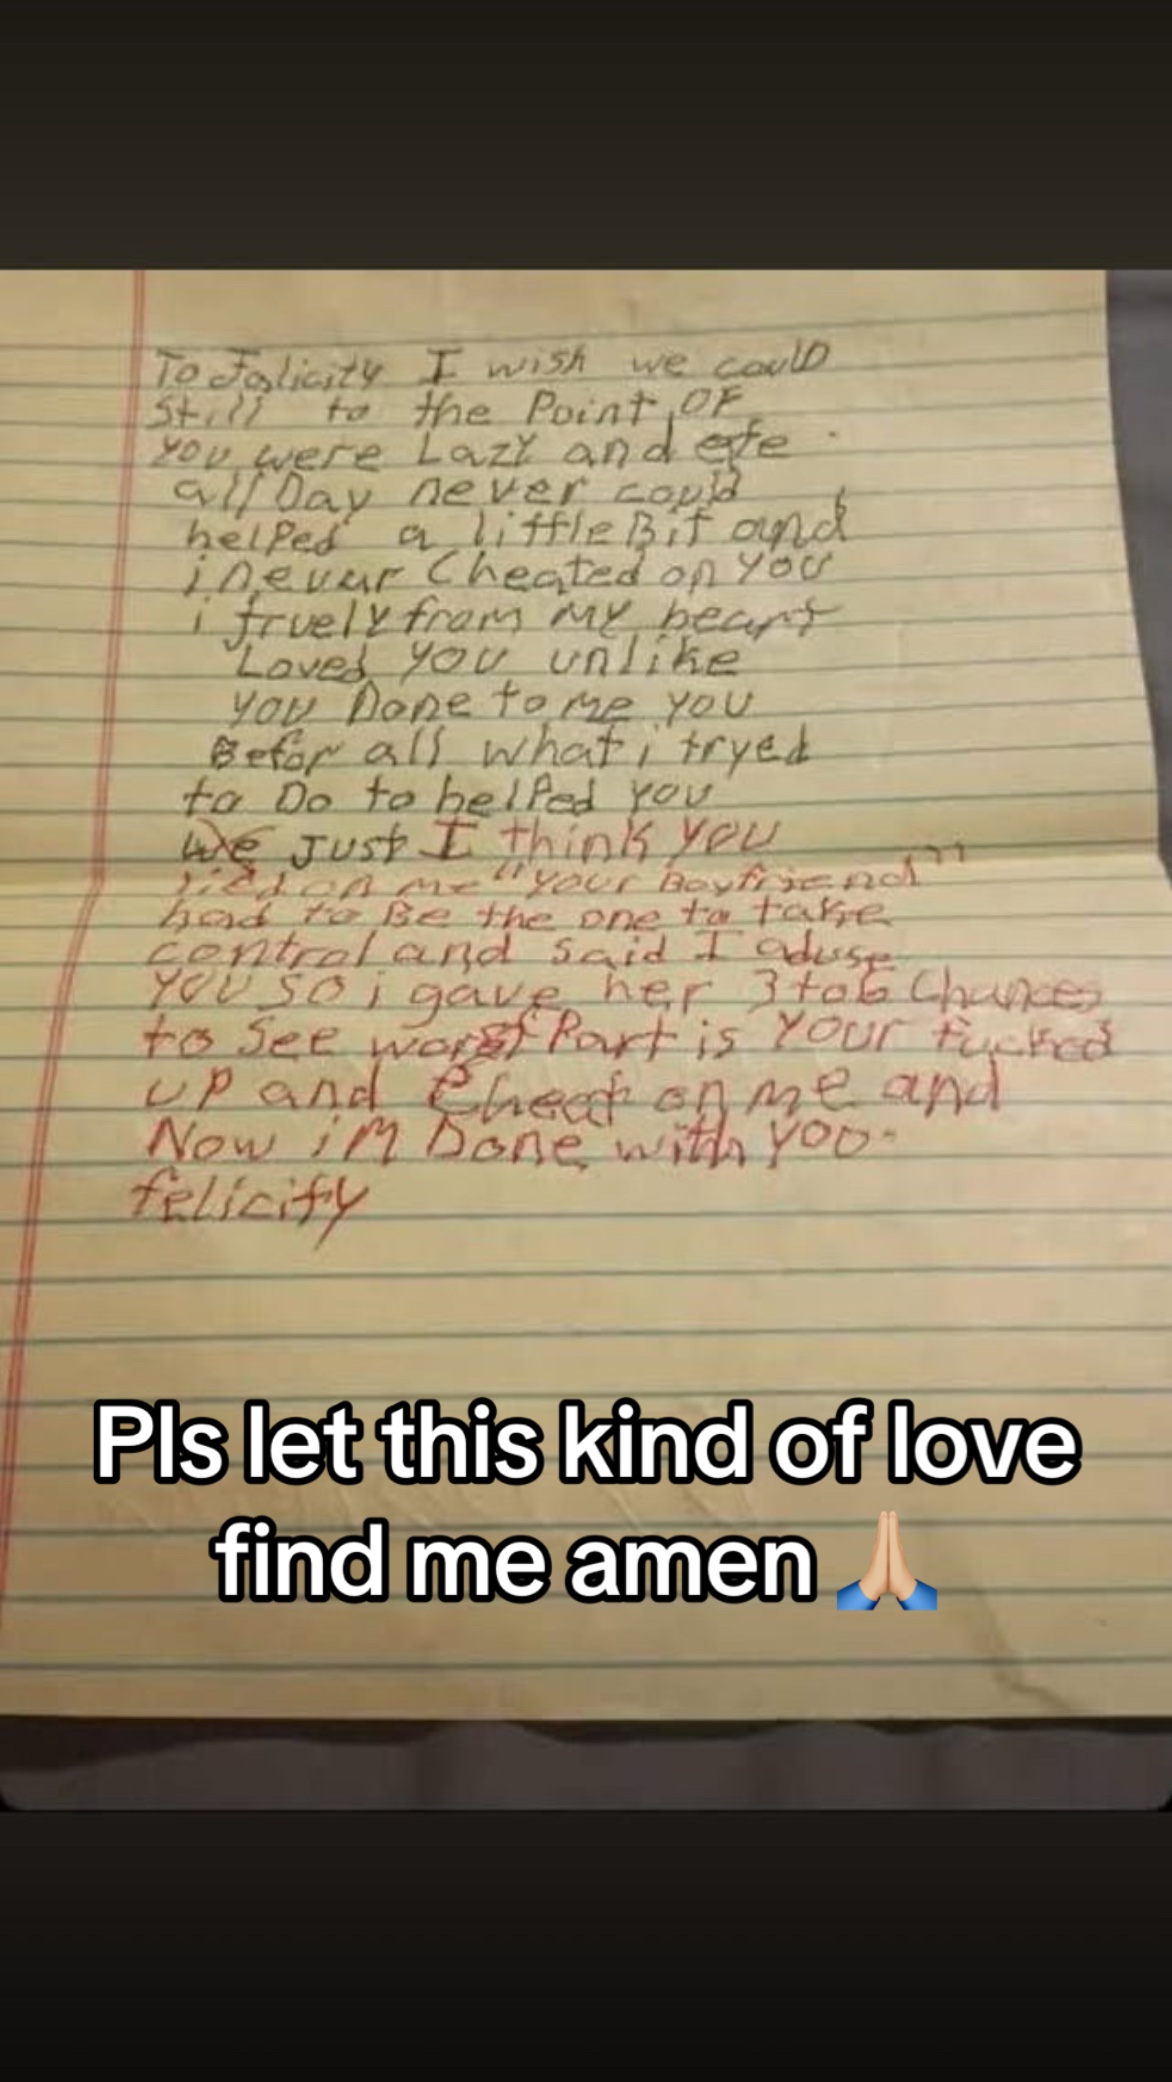 To Falicity I wish we could
still to the Point OF
you were Lazy and ete
all Day never could
helPed a little Bit and
i never Cheated on you
i truely from my heart
Loved you unlike
you Done to me you
Befor all what i tryed
to Do to helPed you
We Just I think you
lied on me "your Boyfriend"
had to Be the one to take
control and said I aduse
you so i gave her 3 to 6 Chances
to See worst Part is your fucked
up and Cheat on me and
Now im Done with you
felicity
Pls let this kind of love
find me amen 🙏🏼